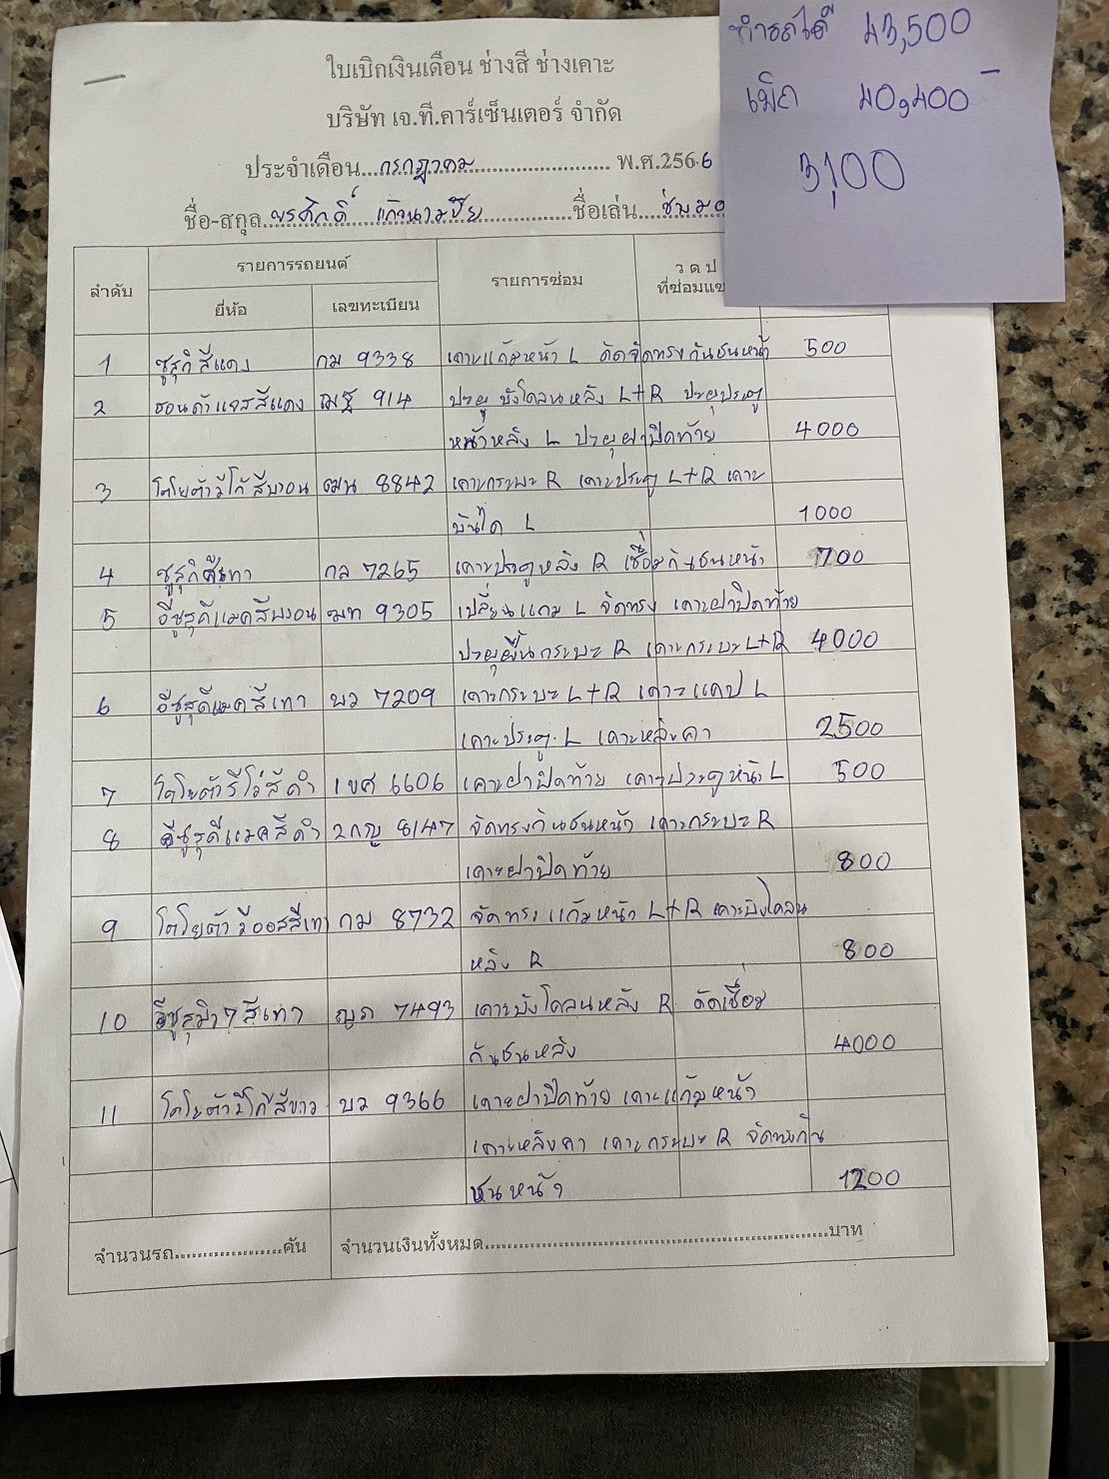 ทำรถได้ 43,500
เบิก 40,400 -
3,100
ใบเบิกเงินเดือน ช่างสี ช่างเคาะ
บริษัท เจ.ที.คาร์เซ็นเตอร์ จำกัด
ประจำเดือน...กรกฎาคม............ พ.ศ.2566
ชื่อ-สกุล..พรศักดิ์ แก้วนามปัย............ชื่อเล่น...ช่าง
ลำดับ รายการรถยนต์ รายการซ่อม ว ด ป
ยี่ห้อ เลขทะเบียน ที่ซ่อม
1 ซูสุกิสีแดง กม 9338 เคาะแก้มหน้า L ดัดจัดทรงกันชนหน้า 500
2 ฮอนด้าแจสสีแดง 914 ปะผุ บังโคลนหลัง L+R ปะผุประตู
หน้าหลัง L ปะผุฝาปิดท้าย 4000
3 โตโยต้าวีโก้สีบรอน ฒน 8842 เคาะกระบะ R เคาะประตู L+R เคาะ
บันได L 1000
4 ซูสุกิสีเทา กล 7265 เคาะประตูหลัง R เชื่อมกันชนหน้า 700
5 อีซูสุดีแมคสีบรอน ฒท 9305 เปลี่ยนแกม L จัดทรง เคาะฝาปิดท้าย
ปะผุพื้นกระบะ R เคาะกระบะ L+R 4000
6 อีซูสุดีแมคสีเทา บว 7209 เคาะกระบะ L+R เคาะแคป L
เคาะประตู L เคาะหลังคา 2500
7 โตโยต้ารีโว่สีดำ 1ขศ 6606 เคาะฝาปิดท้าย เคาะประตูหน้า L 500
8 อีซูสุดีแมคสีดำ 2กญ 8147 จัดทรงกันชนหน้า เคาะกระบะ R
เคาะฝาปิดท้าย 800
9 โตโยต้าวีออสสีเทา กม 8732 จัดทรง แก้มหน้า L+R เคาะบังโคลน
หลัง R 800
10 อีซูสุมิว7สีเทา ญภ 7493 เคาะบังโคลนหลัง R ดัดเชื่อม
กันชนหลัง 4000
11 โตโยต้าวีโก้สีขาว บว 9366 เคาะฝาปิดท้าย เคาะแก้มหน้า
เคาะหลังคา เคาะกระบะ R จัดทรงกัน
ชนหน้า 1200
จำนวนรถ....................คัน จำนวนเงินทั้งหมด............................................................บาท